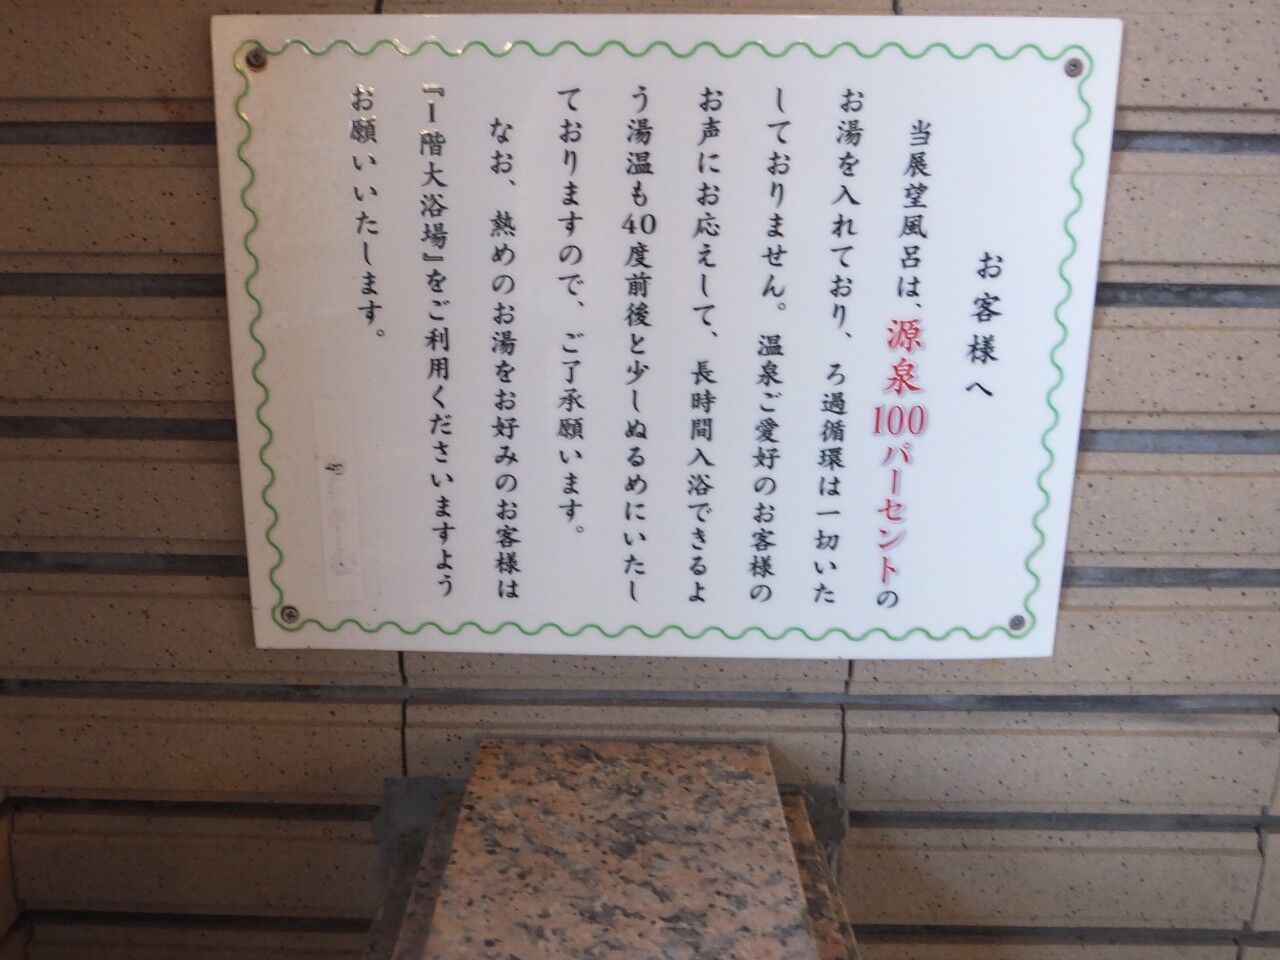 お客様へ
当展望風呂は、源泉100パーセントの
お湯を入れており、ろ過循環は一切いた
しておりません。温泉ご愛好のお客様の
お声にお応えして、長時間入浴できるよ
う湯温も40度前後と少しぬるめにいたし
ておりますので、ご了承願います。
なお、熱めのお湯をお好みのお客様は
『1階大浴場』をご利用くださいますよう
お願いいたします。